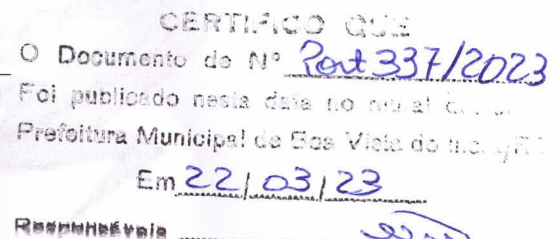 CERTIFICO QUE
O Documento de Nº Port 337/2023
Foi publicado nesta data no mural
Prefeitura Municipal de Boa Vista do
Em 22/03/23
Responsáveis